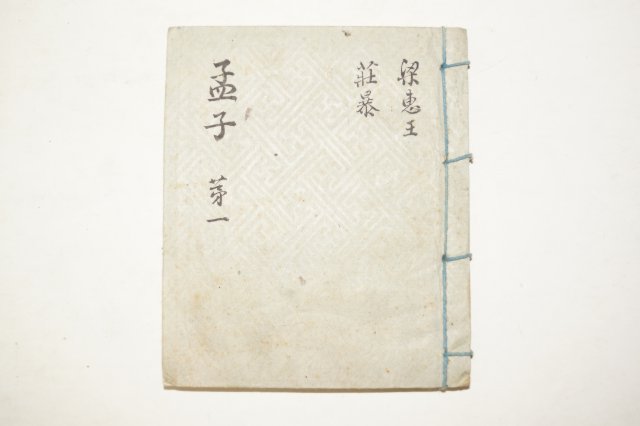 梁惠王
莊暴
孟子 苐一